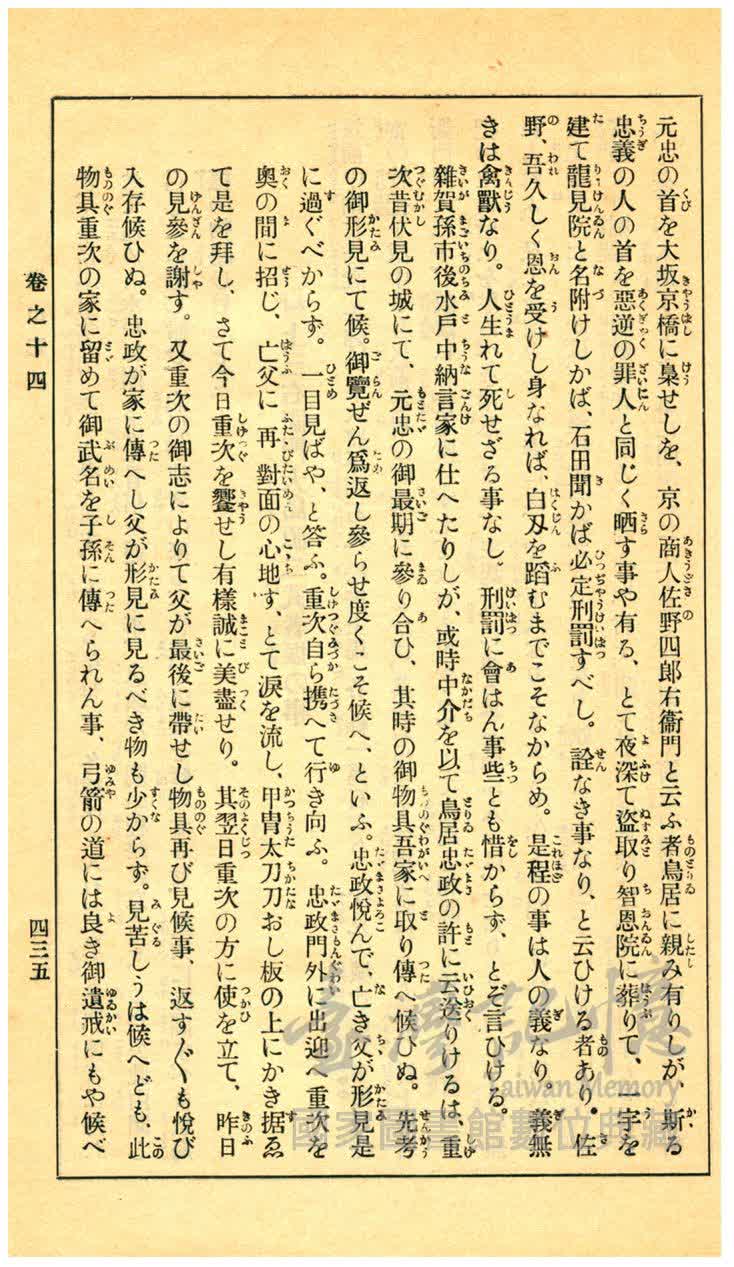 元忠の首を大坂京橋に梟せしを、京の商人佐野四郎右衞門と云ふ者鳥居に親み有りしが、斯る
忠義の人の首を惡逆の罪人と同じく晒す事や有る、とて夜深て盜取り智恩院に葬りて、一宇を
建て龍見院と名附けしかば、石田聞かば必定刑罰すべし。詮なき事なり、と云ひける者あり。佐
野、吾久しく恩を受けし身なれば、白刄を蹈むまでこそなからめ。是程の事は人の義なり。義無
きは禽獸なり。人生れて死せざる事なし。刑罰に會はん事些とも惜からず、とぞ言ひける。
雜賀孫市後水戸中納言家に仕へたりしが、或時中介を以て鳥居忠政の許に云送りけるは、重
次昔伏見の城にて、元忠の御最期に參り合ひ、其時の御物具吾家に取り傳へ候ひぬ。先考
の御形見にて候。御覽ぜん爲返し參らせ度くこそ候へ、といふ。忠政悅んで、亡き父が形見是
に過ぐべからず。一目見ばや、と答ふ。重次自ら携へて行き向ふ。忠政門外に出迎へ重次を
奧の間に招じ、亡父に再對面の心地す、とて淚を流し、甲冑太刀刀おし板の上にかき据ゑ
て是を拜し、さて今日重次を饗せし有樣誠に美盡せり。其翌日重次の方に使を立て、昨日
の見參を謝す。又重次の御志によりて父が最後に帶せし物具再び見候事、返すぐ〳〵も悅び
入存候ひぬ。忠政が家に傳へし父が形見に見るべき物も少からず。見苦しうは候へども、此
物具重次の家に留めて御武名を子孫に傳へられん事、弓箭の道には良き御遺戒にもや候べ
卷之十四
四三五
臺灣記憶
Taiwan Memory
國家圖書館數位典藏